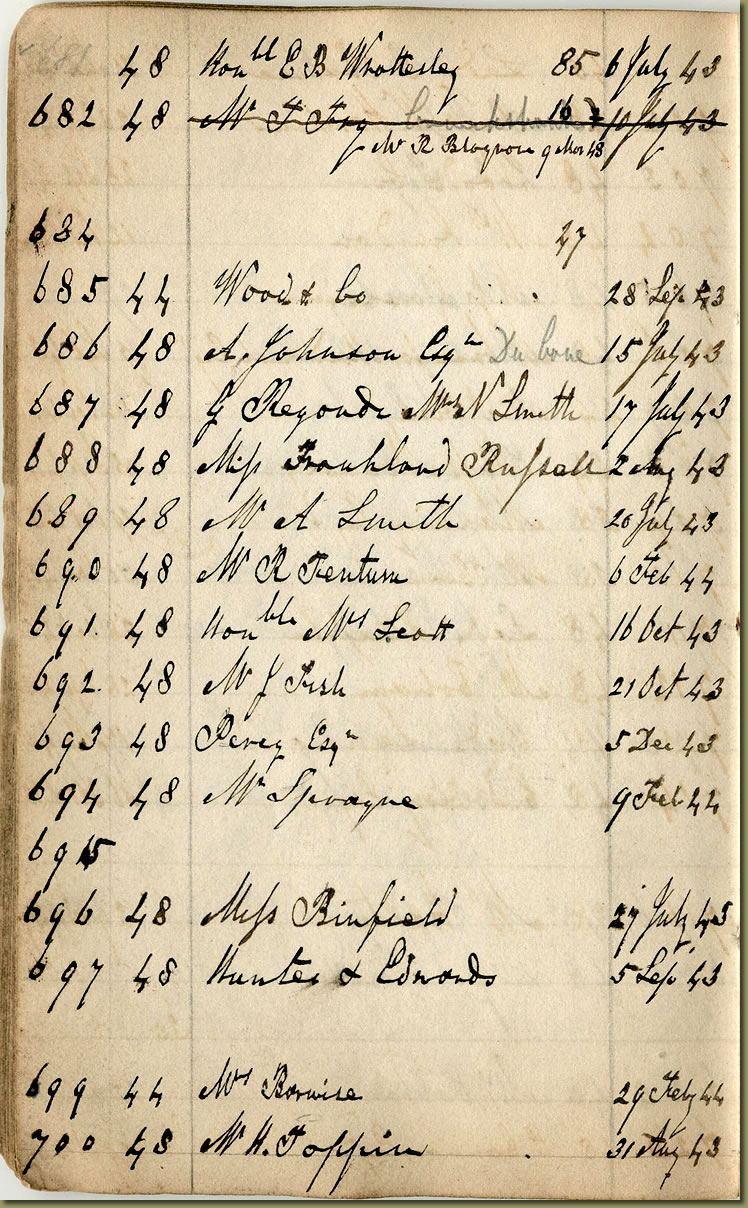 681 48 Honbl E B Wrottesley 85 6 July 43
682 48 Mr F Fry 16 10 July 43
Mr R Blagrove 9 Mar 48
684 27
685 44 Wood & Co 28 Sep 43
686 48 A. Johnson Esqr 15 July 43
687 48 G Regondi Mrs N Smith 17 July 43
688 48 Miss Frankland Russell 2 Aug 43
689 48 Mr A Smith 20 July 43
690 48 Mr R Fentum 6 Feb 44
691 48 Honble Mrs Scott 16 Oct 43
692 48 Mr J Fish 21 Oct 43
693 48 Percy Esqr 5 Dec 43
694 48 Mr Sprague 9 Feb 44
695
696 48 Miss Binfield 27 July 43
697 48 Hunter & Edwards 5 Sep 43
699 44 Mrs Borwise 29 Feby 44
700 48 Mr H. Toppin 31 Aug 43